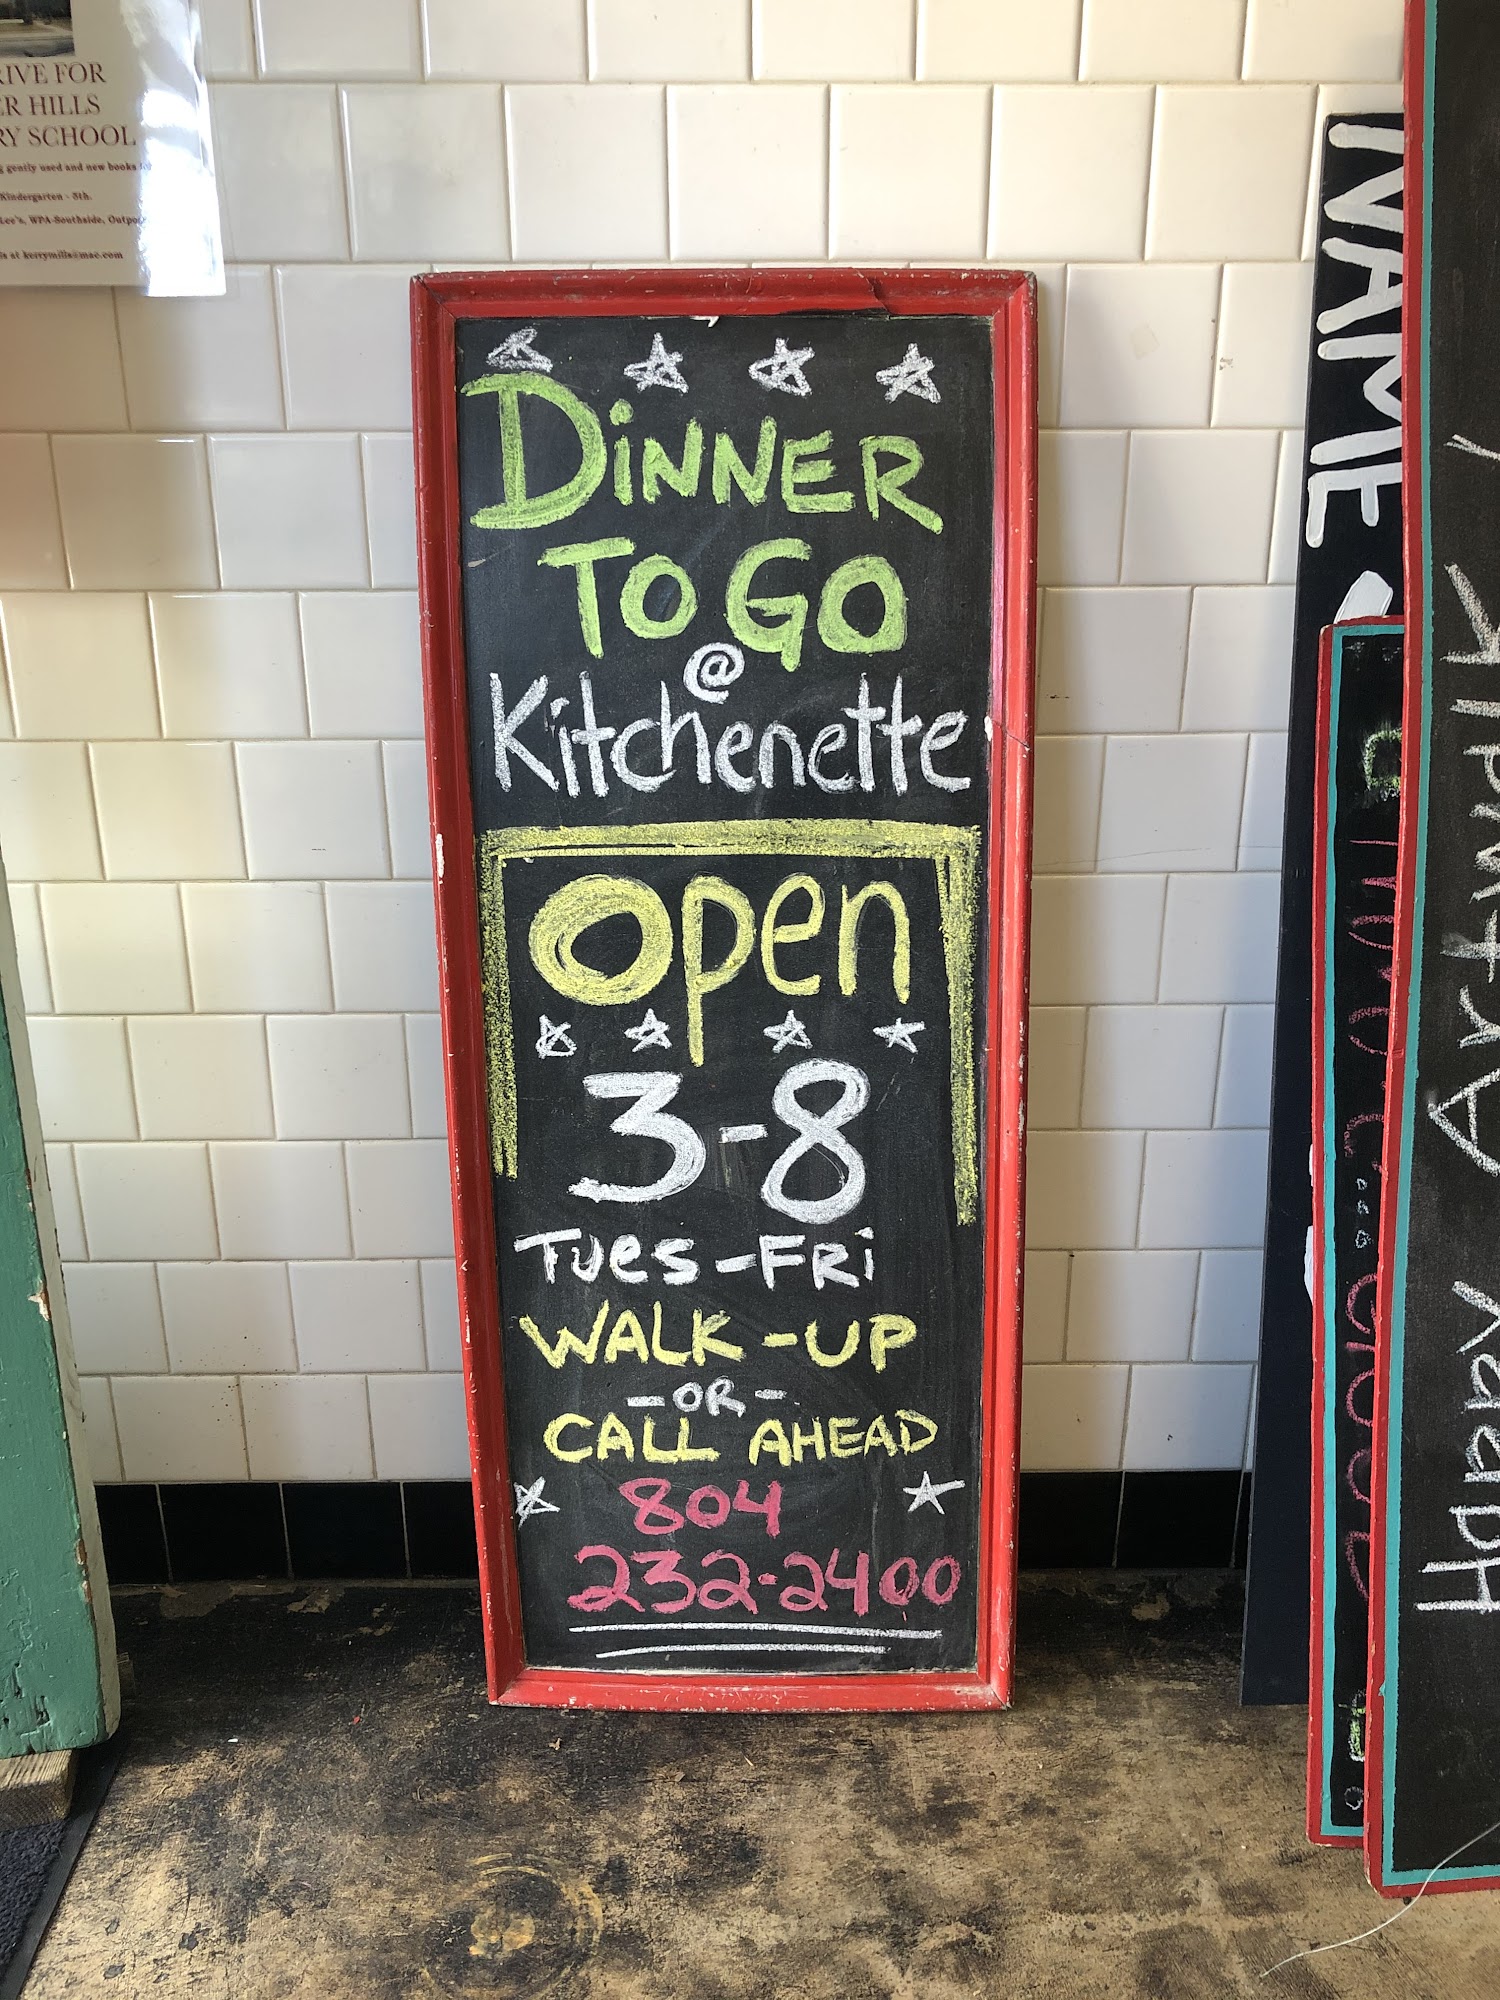 RIVE FOR
ER HILLS
RY SCHOOL
gently used and new books
Kindergarten - 5th.
Lee's, WPA-Southside,
at kerrymills@mac.com
DiNNER
TO GO
@
Kitchenette
Open
3-8
Tues-FRi
WALK-UP
-OR-
CALL AHEAD
804
232-2400
NAME
Happy